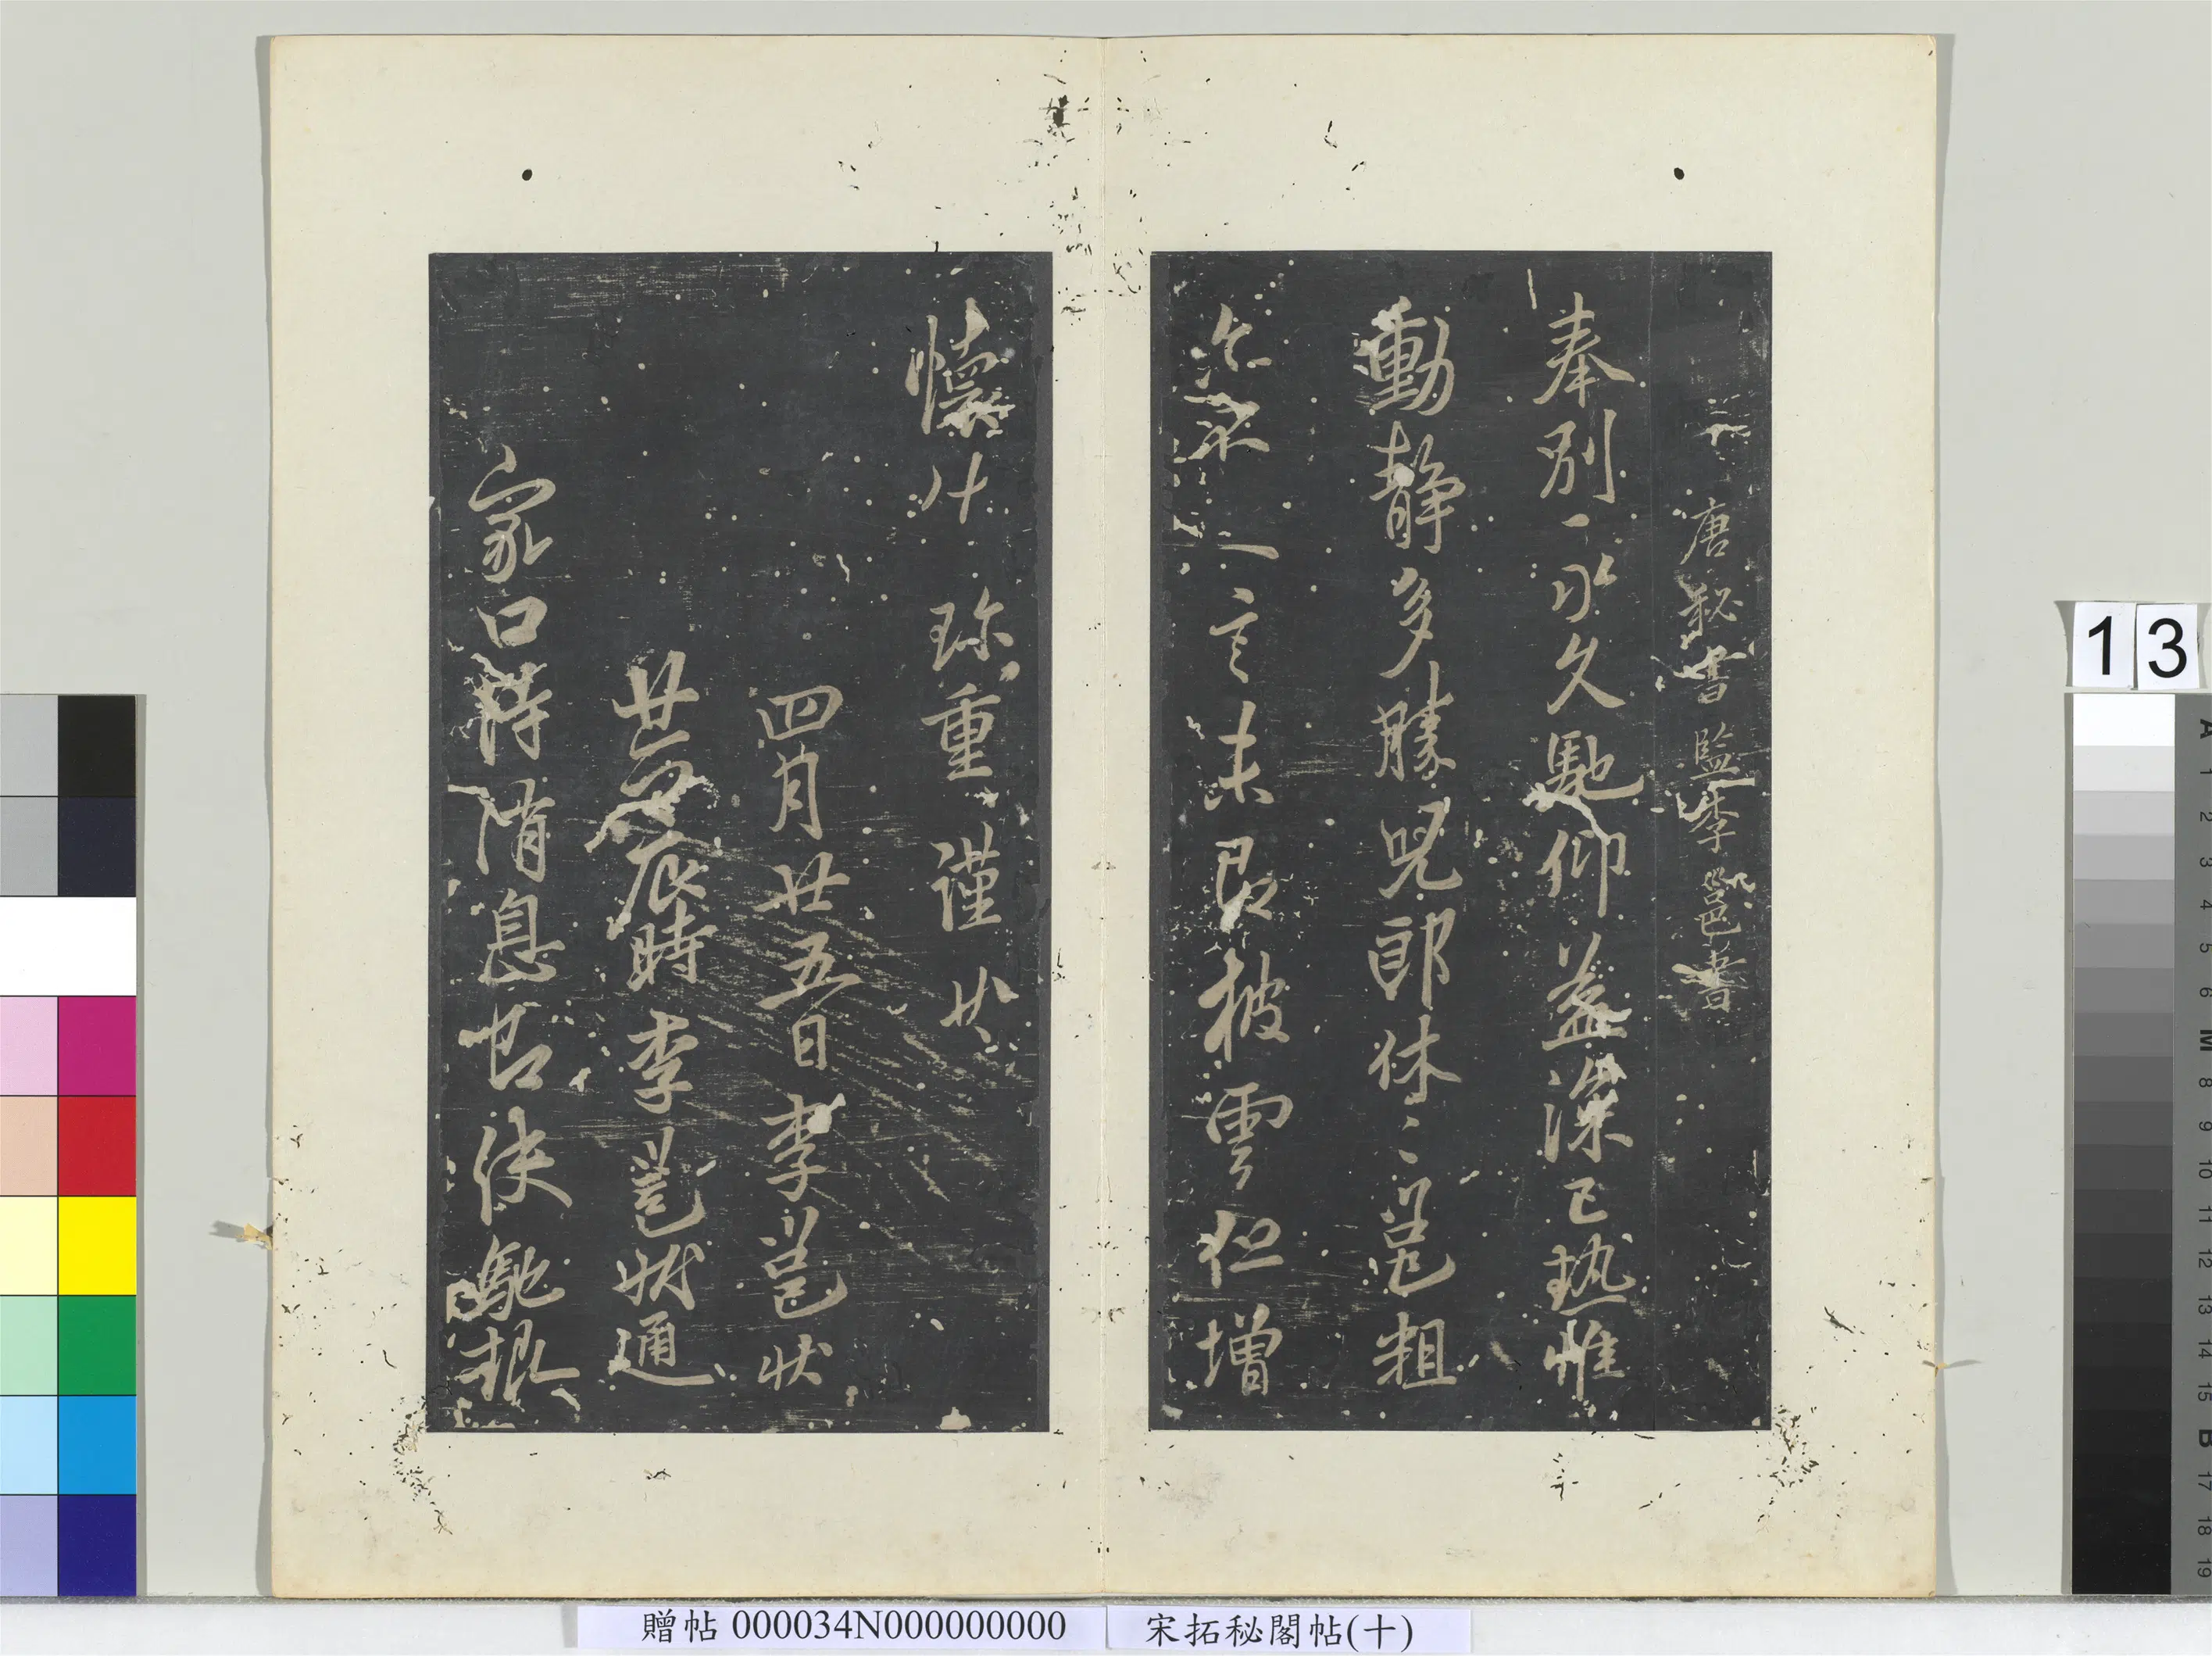 唐秘書監李邕書
奉別久馳仰益深已熱惟
動靜多勝兒郎休〻邕粗
尒一言未即披雲但增
懷珍重謹
四月廿五日李邕狀
廿辰時李邕狀通
家口息使馳
13
贈帖 000034N000000000
宋拓秘閣帖(十)
A 1 2 3 4 5 6 M 8 9 10 11 12 13 14 15 B 17 18 19